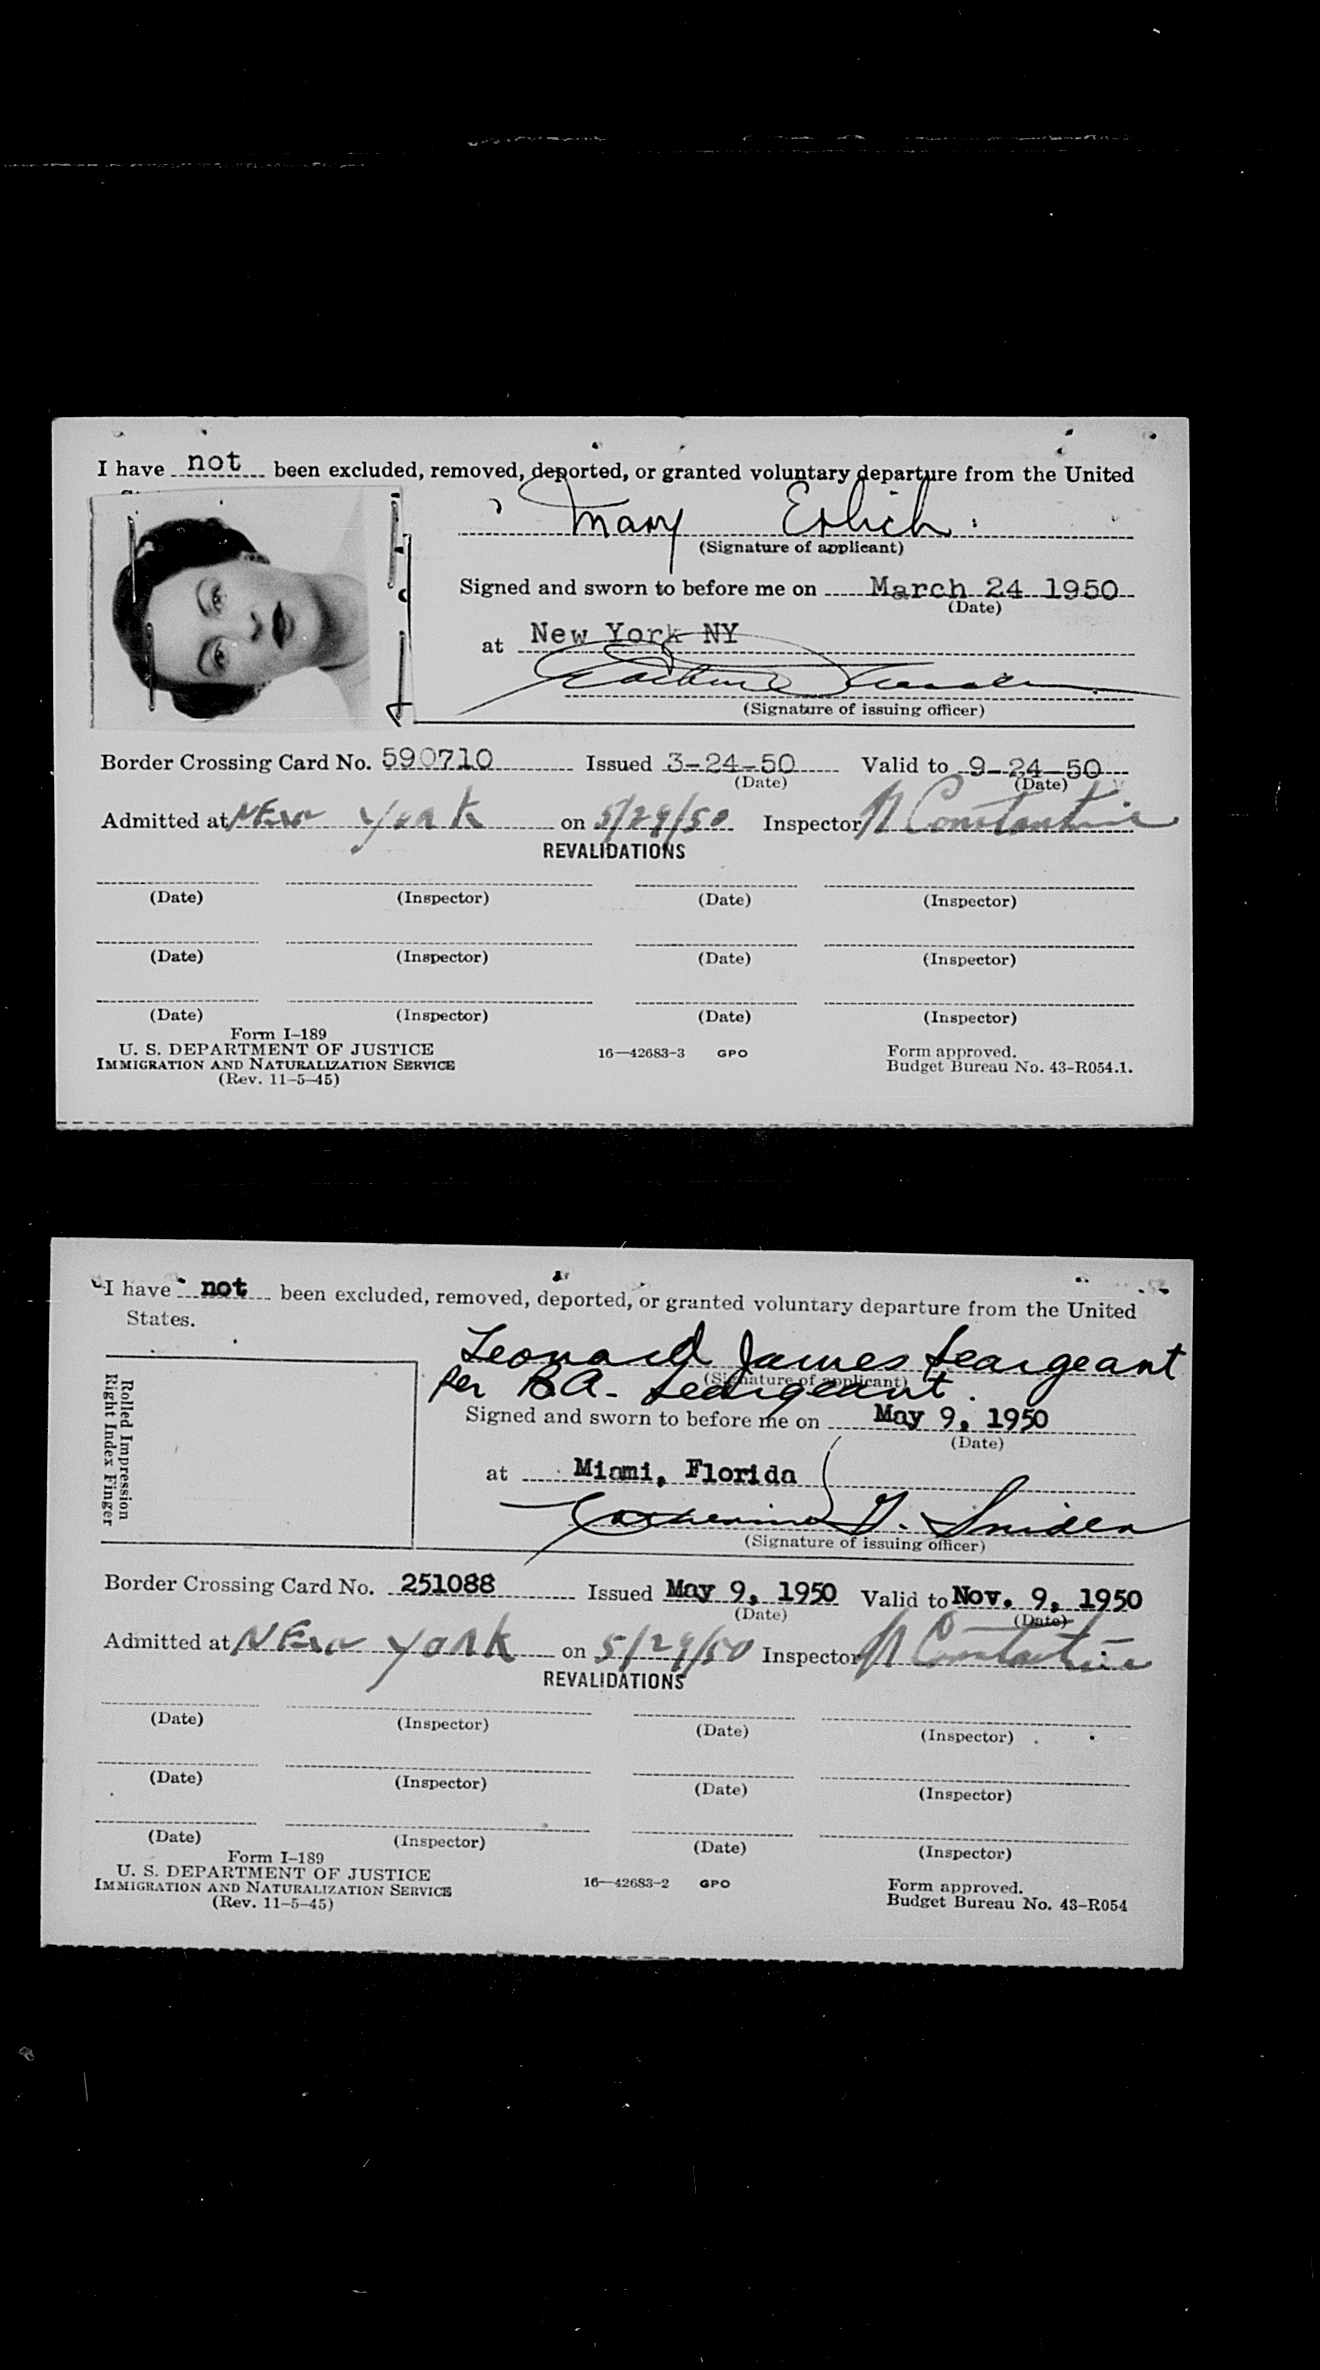 I have not been excluded, removed, deported, or granted voluntary departure from the United
Mary Erlich
(Signature of applicant)
Signed and sworn to before me on March 24 1950
(Date)
at New York NY
(Signature of issuing officer)
Border Crossing Card No. 590710 Issued 3-24-50 Valid to 9-24-50
(Date) (Date)
Admitted at New York on 5/29/50 Inspector N Constantine
REVALIDATIONS
(Date) (Inspector) (Date) (Inspector)
(Date) (Inspector) (Date) (Inspector)
(Date) (Inspector) (Date) (Inspector)
Form I-189
U. S. DEPARTMENT OF JUSTICE
IMMIGRATION AND NATURALIZATION SERVICE
(Rev. 11-5-45)
16—42683-3 GPO
Form approved.
Budget Bureau No. 43-R054.1.
I have not been excluded, removed, deported, or granted voluntary departure from the United
States.
Leonard James Seargeant
(Signature of applicant)
Per B.A. Seargeant.
Rolled Impression
Right Index Finger
Signed and sworn to before me on May 9, 1950
(Date)
at Miami, Florida
Catherine G. Snider
(Signature of issuing officer)
Border Crossing Card No. 251088 Issued May 9, 1950 Valid to Nov. 9, 1950
(Date) (Date)
Admitted at New York on 5/29/50 Inspector N Constantine
REVALIDATIONS
(Date) (Inspector) (Date) (Inspector)
(Date) (Inspector) (Date) (Inspector)
(Date) (Inspector) (Date) (Inspector)
Form I-189
U. S. DEPARTMENT OF JUSTICE
IMMIGRATION AND NATURALIZATION SERVICE
(Rev. 11-5-45)
16—42683-2 GPO
Form approved.
Budget Bureau No. 43-R054